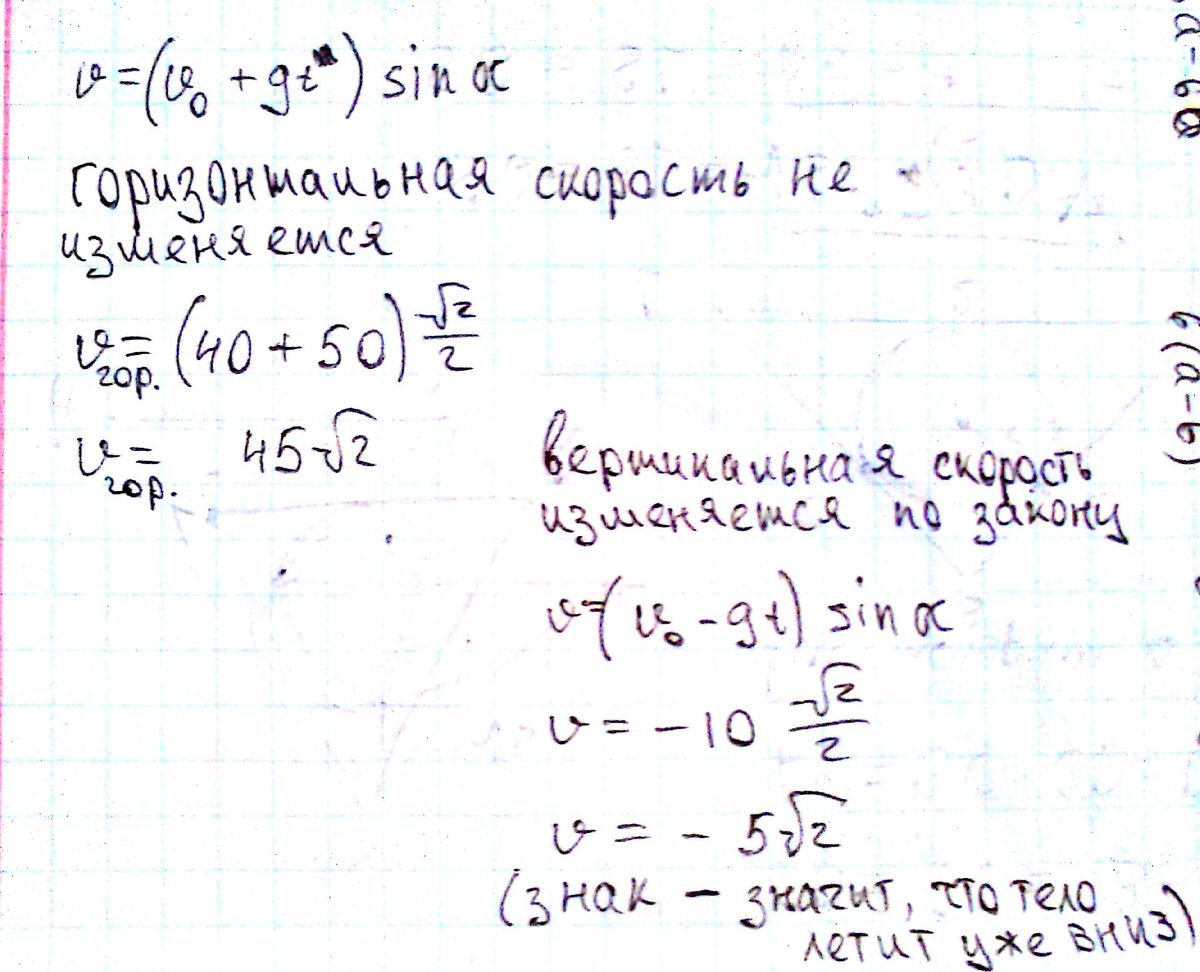 v = (v₀ + gt) sin α
горизонтальная скорость не
изменяется
v гор. = (40 + 50) √2/2
v гор. = 45√2
вертикальная скорость
изменяется по закону
v = (v₀ - gt) sin α
v = - 10 √2/2
v = - 5√2
(знак – значит, что тело
летит уже вниз)